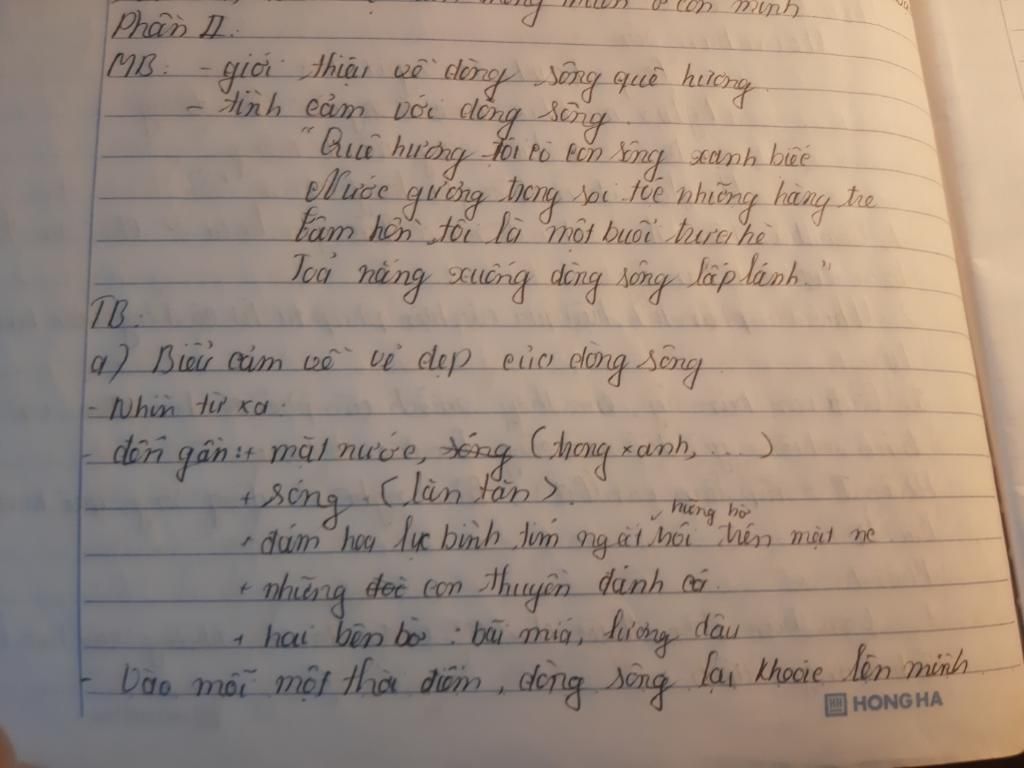 mong muốn ở con mình
Phần II:
MB: - giới thiệu về dòng sông quê hương
- tình cảm với dòng sông
"Quê hương tôi có con sông xanh biếc
Nước gương trong soi tóc những hàng tre
Tâm hồn tôi là một buổi trưa hè
Toả nắng xuống dòng sông lấp lánh."
TB:
a) Biểu cảm về vẻ đẹp của dòng sông
- Nhìn từ xa:
- đến gần: + mặt nước, sóng (trong xanh, ...)
+ sóng (lăn tăn)
+ đám hoa lục bình tím ngắt hững hờ trôi trên mặt nc
+ những con thuyền đánh cá.
+ hai bên bờ: bãi mía, nương dâu
- Vào mỗi một thời điểm, dòng sông lại khoác lên mình
HH HONG HA